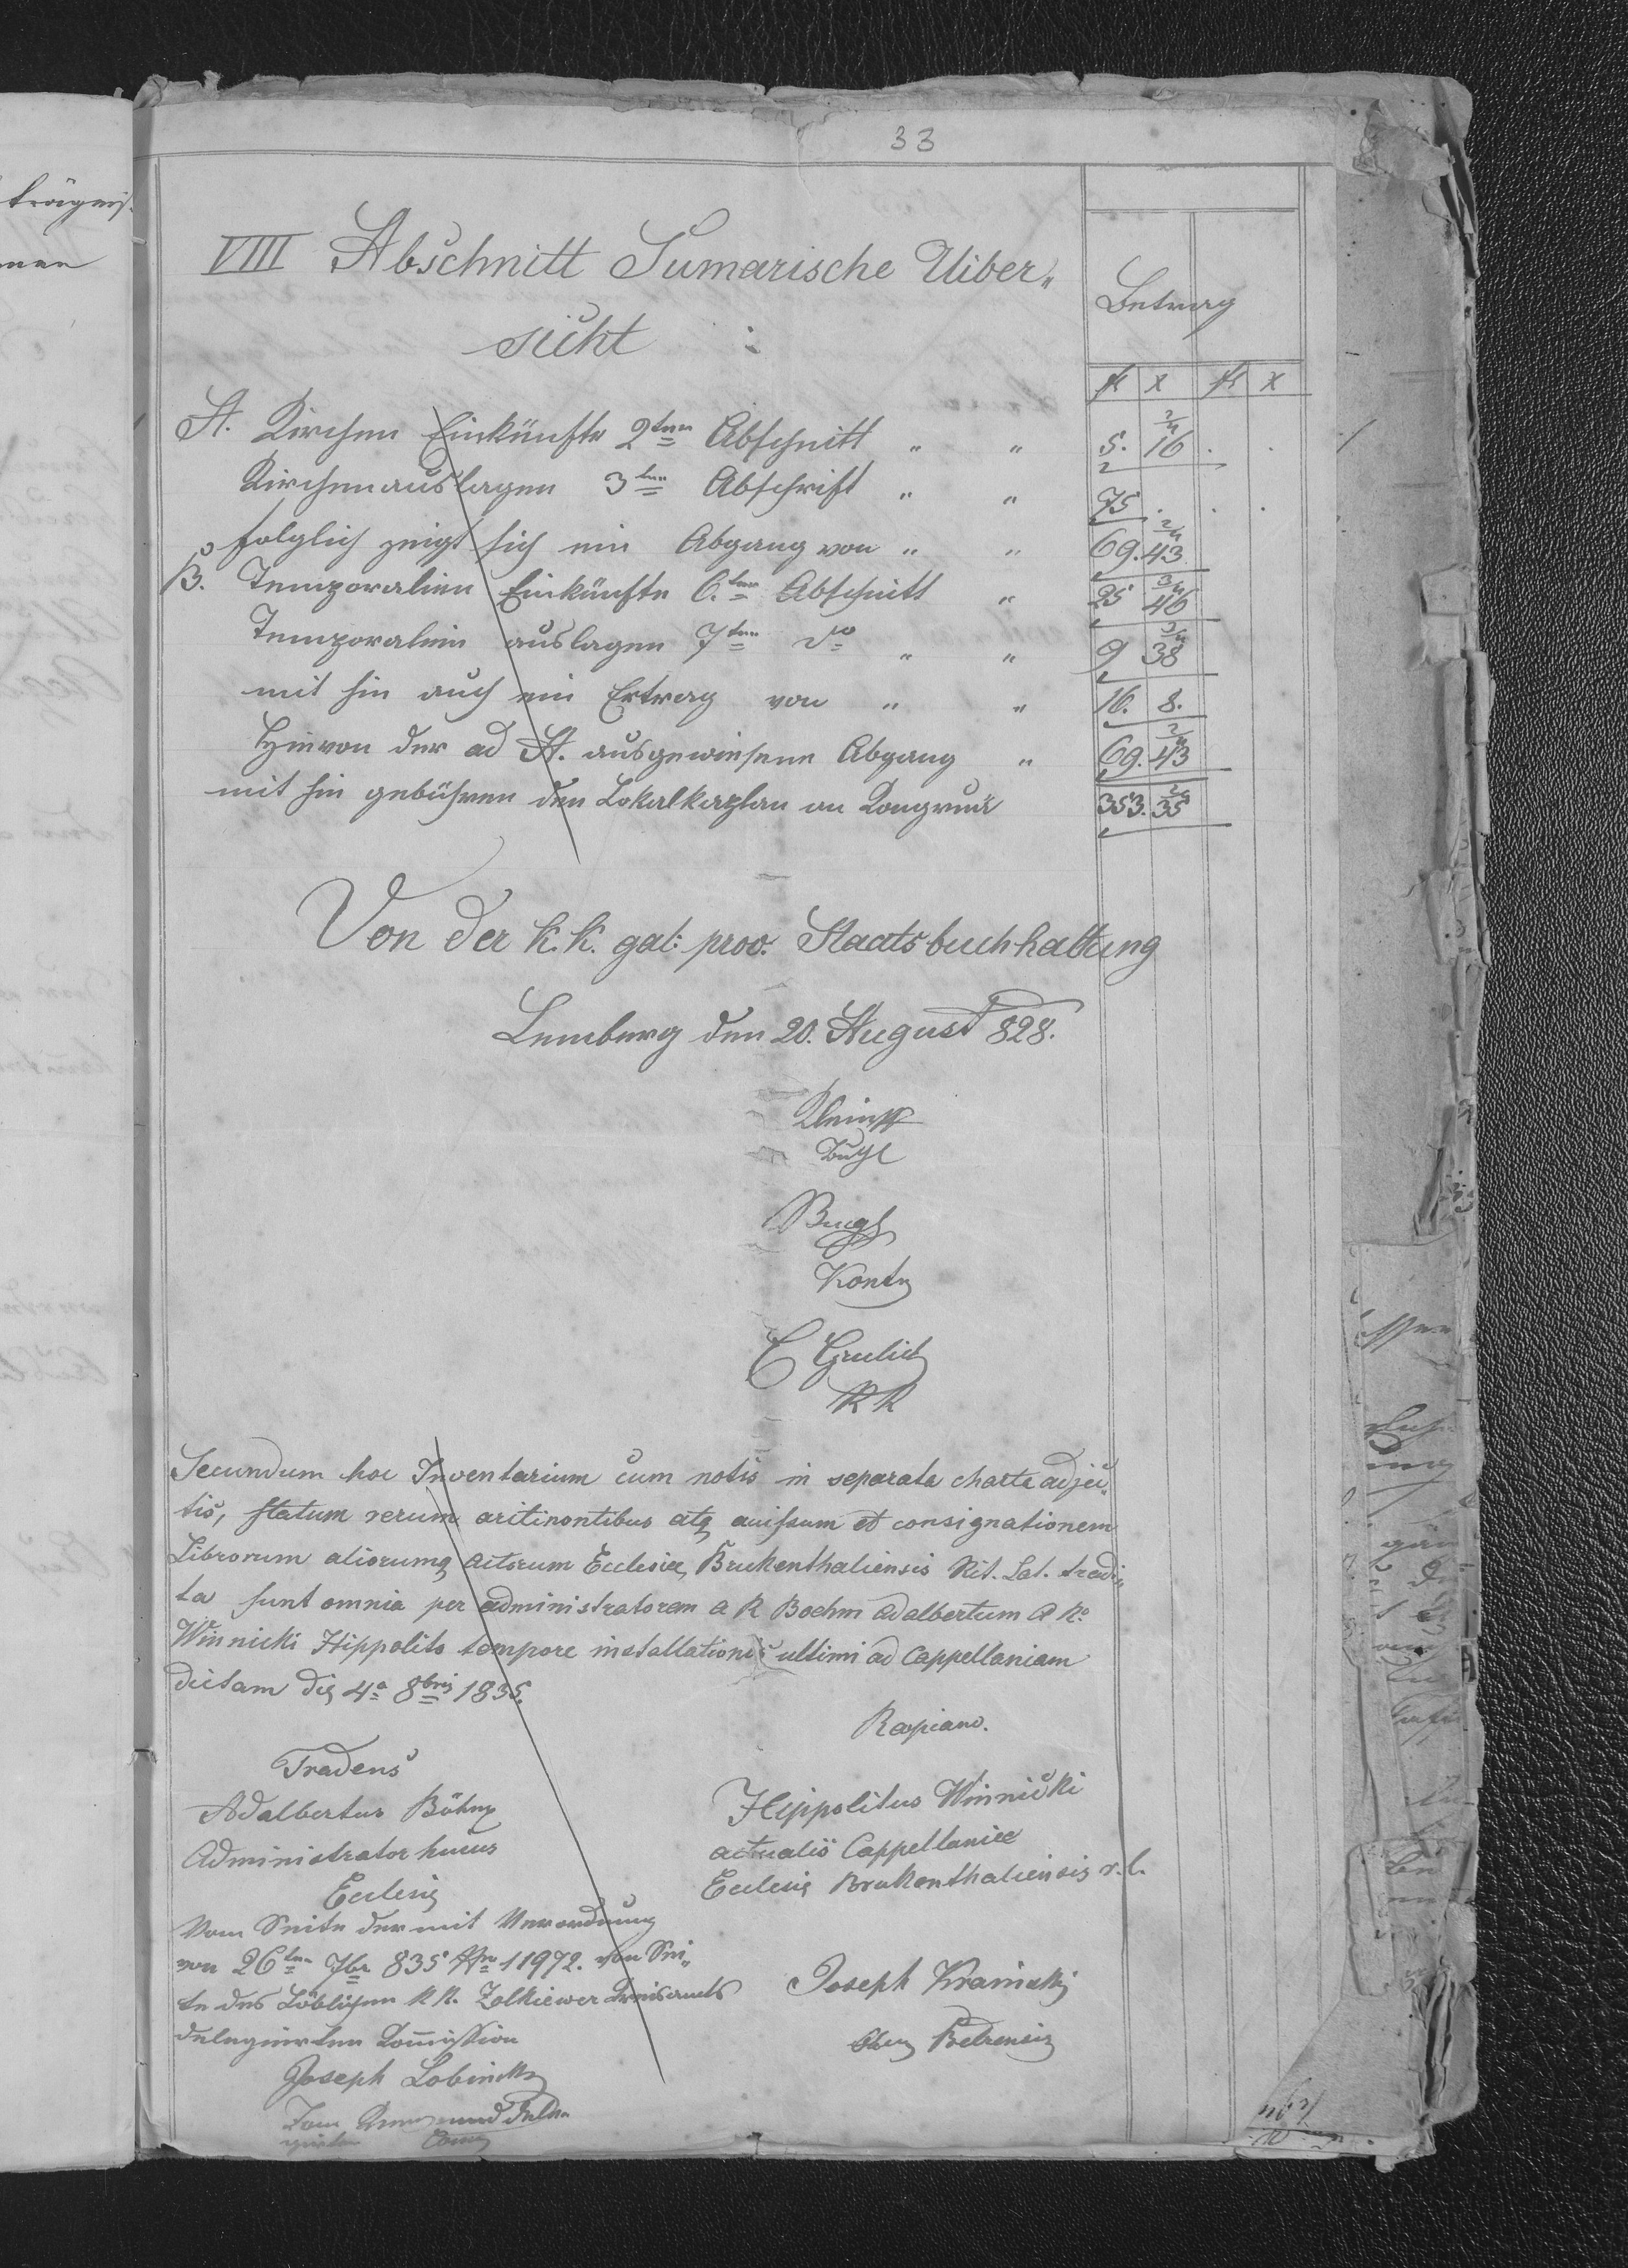 33
VIII Abschnitt Sumarische Uiber„
sicht :
Betrag
fl x fl x
A. Kirchen Einkünfte 2ten Abschnitt „ „ 5. 16 2/4 . .
Kirchenauslagen 3ten Abschrift „ „ 75 . . .
folglich zeigt sich ein Abgang von „ „ 69. 43 2/4
B. Temporalien Einkünfte 6.ten Abschnitt „ 25 46 3/4
Temporalien auslagen 7ten do „ „ 9 38 3/4
mit hin auch ein Ertrag von „ „ 16. 8.
Hievon der ad A. ausgewiesene Abgang „ 69. 43 2/4
mit hin gebühren den Lokalkaplan an Kongrua 353. 35 2/4
Von der k. k. gal: prov. Staatsbuchhaltung
Lemberg den 20. August 828.
Buch
Kont
C Grulich
RR
Secundum hoc Inventarium cum notis in separata charta adjec„
tis, statum rerum atq et consignationem
Librorum aliorumq actorum Ecclesiæ Brukenthaliensis Rit. Lat. tradi„
ta sunt omnia per administratorem a R Boehm Adalbertum A R.
Winnicki Hippolito tempore installationis ultimi ad Cappellaniam
dictam die 4a 8bris 1835.
Tradens
Adalbertus Böhm
Administrator huius
Ecclesię
Rapiano.
Hippolitus Winnicki
actualis Cappellaniæ
Ecclesię Brukenthaliensis r. l.
Vom Seite der mit Verordnung
von 26ten 7br 835 Nro 11972. von Sei„
te des Löblichen kk. Zolkiewer Kreisamts
delegierten Kommission
Joseph Kranicki
Joseph Lobinck